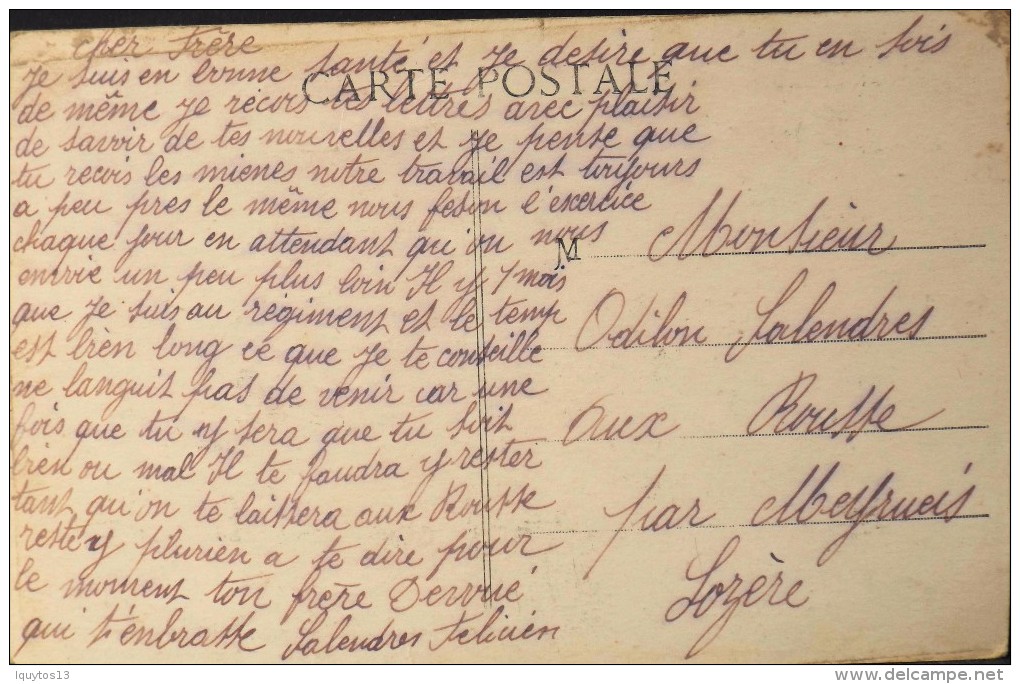 cher Frère
Je suis en bonne santé et Je desire que tu en sois
CARTE POSTALE
de même Je recois tes lettres avec plaisir
de savoir de tes nouvelles et Je pense que
tu recois les mienes nitre travail est toujours
a peu pres le même nous feson l'exercice
chaque jour en attendant qu'on nous
envoie un peu plus loin Il y 1 mois
que Je suis au régiment et le temp
est bien long ce que Je te conseille
ne languit pas de venir car une
fois que tu y sera que tu soit
bien ou mal Il te faudra y rester
tant qu'on te laissera aux Rousse
reste y plurien a te dire pour
le moment ton frère Devoué
qui t'enbrasse Salendres Felicien
M Monsieur
Odilon Salendres
aux Rousse
par Meyrueis
Lozère
lquytos13
©delcampe.net